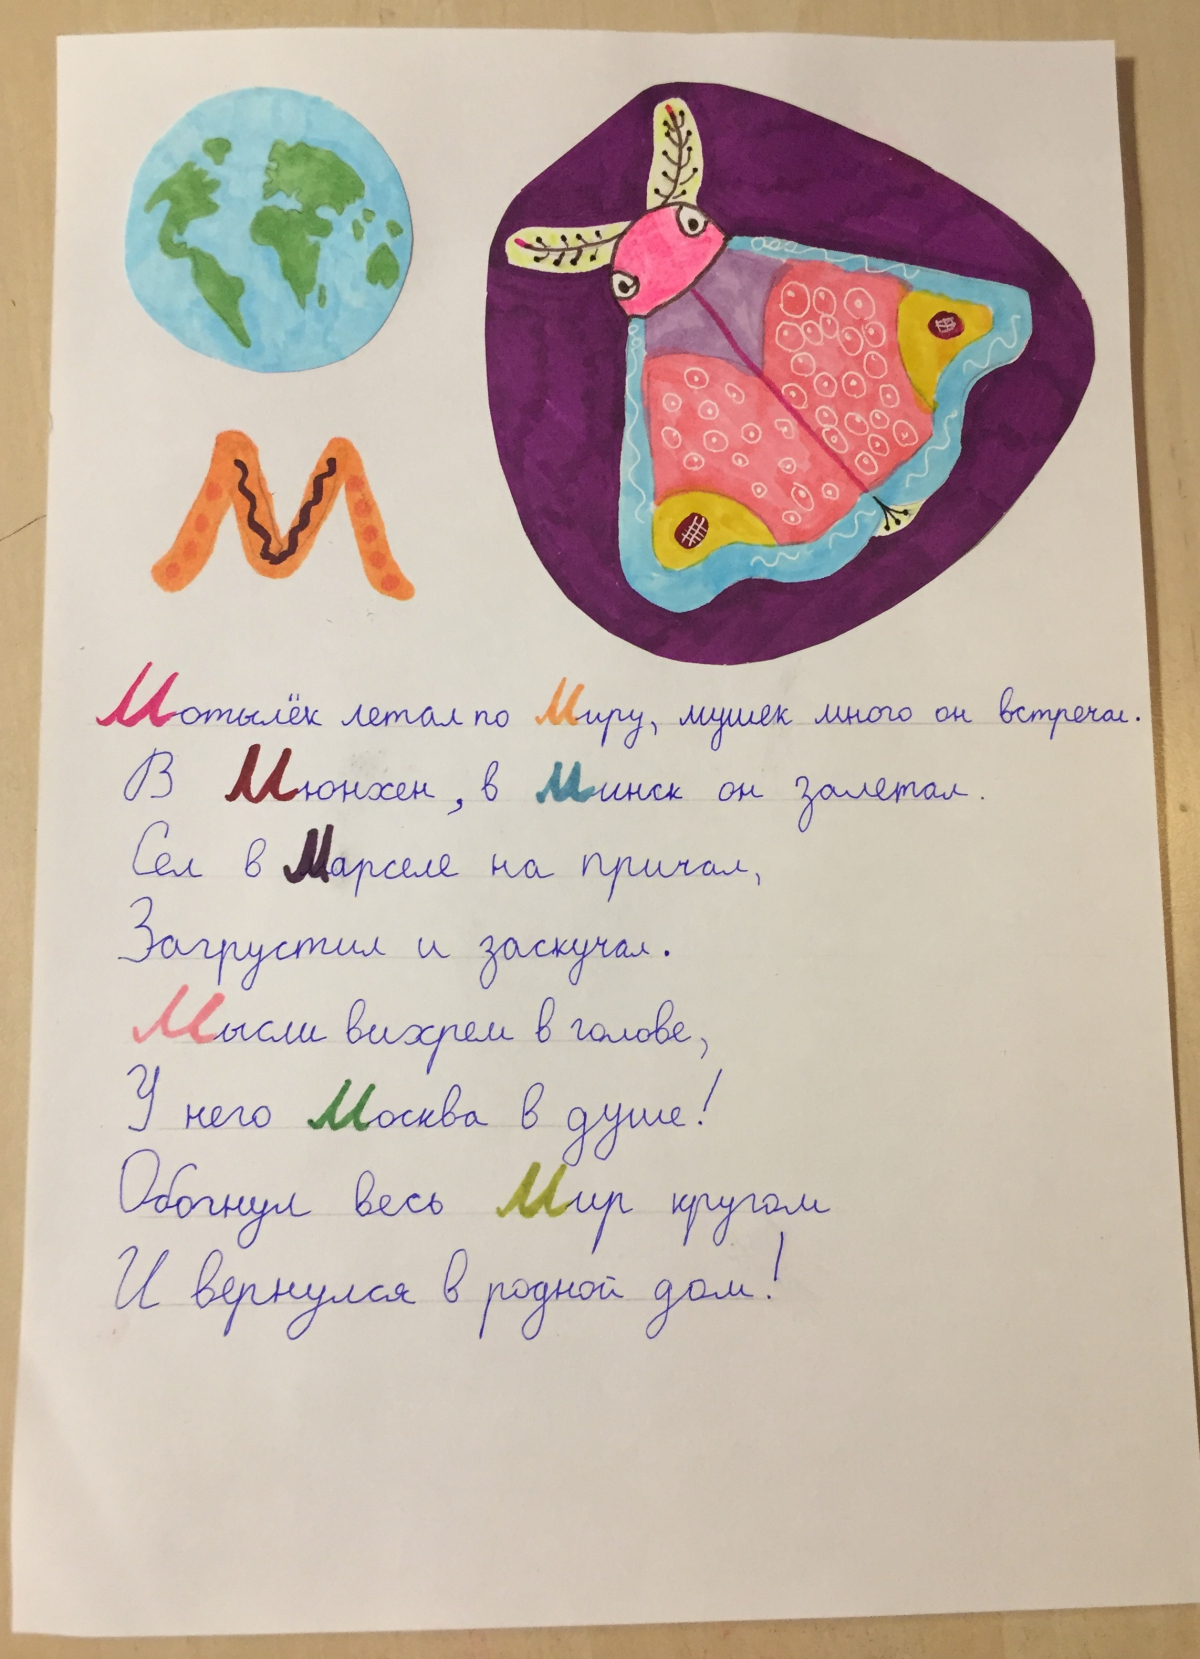 М
Мотылёк летал по Миру, мушек много он встречал.
В Мюнхен, в Минск он залетал.
Сел в Марселе на причал,
Загрустил и заскучал.
Мысли вихрем в голове,
У него Москва в душе!
Обогнул весь Мир кругом
И вернулся в родной дом!